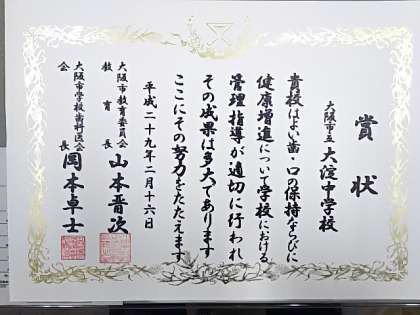 賞状
大阪市立 大淀中学校
貴校はよい歯・口の保持ならびに
健康増進について学校における
管理指導が適切に行われ
その成果は多大であります
ここにその努力をたたえます
平成二十九年二月十六日
大阪市教育委員会
教育長 山本晋次
大阪市学校歯科医会
会長 岡本卓士